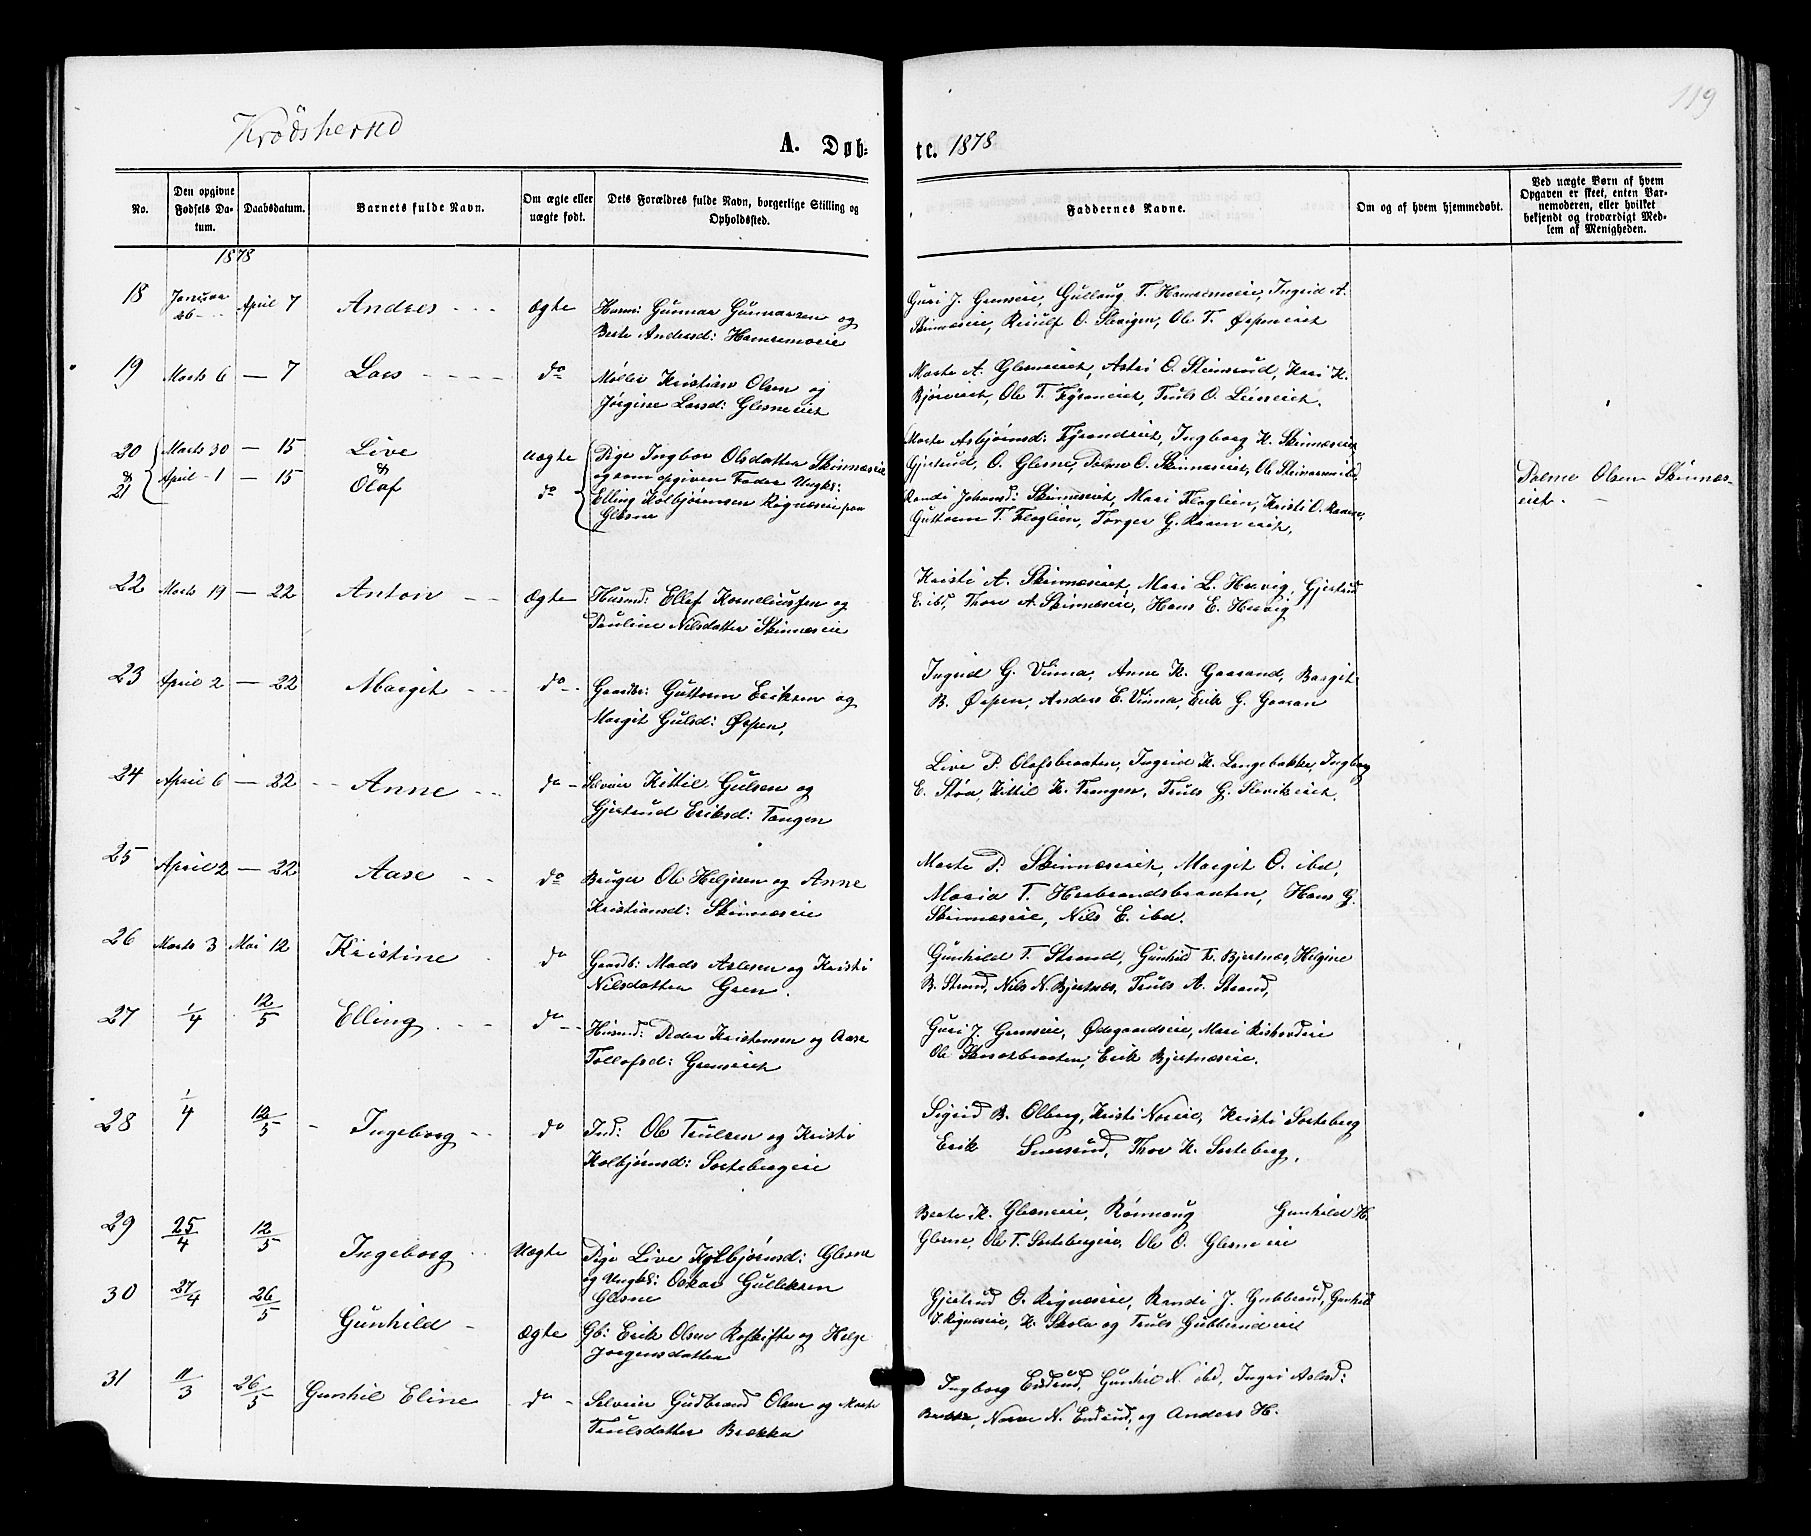 119
Krødsherred
A. Døb-
te. 1878
No.
Den opgivne
Fødsels Da-
tum.
Daabsdatum.
Barnets fulde Navn.
Om ægte eller
uægte født.
Dets Forældres fulde Navn, borgerlige Stilling og
Opholdssted.
Faddernes Navne.
Om og af hvem hjemmedøbt.
Ved uægte Børn af hvem
Opgaven er skeet, enten Bar-
nemoderen, eller hvilket
bekjendt og troværdigt Med-
lem af Menigheden.
1878
18 Januar 26 April 7 Andres Ægte Husm: Gunnar Gunnarsen og
Berte Andersd: Hamremoeie
Guri J. Grenseie, Gullaug T. Hamremoeie, Ingrid A.
Skinnæseie, O. Slevigen, Ole T. Ørpeneiet
19 Marts 6 — 7 Lars do Møller Kristian Olsen og
Jørgine Larsd: Glesneeiet
Marte A. Glesneeiet, Astri O. Stensrud, Kari K.
Bjøreeiet, Ole T. Fyraneiet, Truls O.
20 Marts 30 — 15 Live Uægte Pige Ingbor Olsdatter Skinnæseie
& 21 April 1 — 15 & Olaf do og som opgiven Fader Ungk:
Elling Kolbjørnsen Rignæseie paa
Glesne
Marte Asbjørnsd: Fyrandeiet, Ingborg K. Skinnæseie
Gjertrud O. Glesne, Palme O. Skinnæseiet, Ole
Randi Johansd: Skinnæseiet, Mari Floglien, Kristi O. Raaen,
Guttorm T. Floglien, Torger G. Raaeneiet,
Palme Olsen Skinnæs-
eiet.
22 Marts 19 — 22 Anton Ægte Husmd: Ellef Korneliussen og
Pauline Nilsdatter Skinnæseie
Kristi A. Skinnæseiet, Mari L. Hervig, Gjertrud
E. ibd, Thore A. Skinnæseie, Hans E. Hervig
23 April 2 — 22 Margit do Gaardbr: Guttorm Eriksen og
Margit Gulsd: Ørpen,
Ingrid G. Vinna, Anne K. Gaarand, Bargit
B. Ørpen, Anders E. Vinna, Erik G. Gaaran
24 April 6 — 22 Anne do Selveier Kittil Gulsen og
Gjertrud Eriksd: Tangen
Live P. Olafsbraaten, Ingrid K. Langebakke, Ingbor
E. Støa, Kittil K. Trangen, Truls G. Slevikeiet.
25 April 2 — 22 Aase do Bruger Ole Helgesen og Anne
Kristiansd: Skinnæseie
Marte P. Skinnæseiet, Margit O. ibd,
Maria T. Herbrandsbraaten, Hans G.
Skinnæseie, Nils E. ibd.
26 Marts 3 Mai 12 Kristine do Gaardb: Mads Aslesen og Kristi
Nilsdatter Gren.
Gunhild T. Strand, Gunhild Tr. Bjertnæs, Helgine
B. Strand, Nils N. Bjertnæs, Truls A. Strand,
27 1/4 12/5 Elling do Husmd: Peder Kristensen og Aase
Tollofsd: Grenseiet
Guri J. Grenseie, Ødegaardseie, Mari
Ole Skaarbraaten, Erik Bjertnæseie.
28 1/4 12/5 Ingeborg do Ind: Ole Trulsen og Kristi
Kolbjørnsd: Sortebergeie
Sigrid B. Olberg, Kristi Noreie, Kristi Sorteberg
Erik Snersrud, Thor K. Sorteberg,
29 25/4 12/5 Ingeborg Uægte Pige Live Kolbjørnsd: Glesne
og Ungks: Oskar Gulliksen
Glesne
Berte K. Glesneeie, Rønnaug Gunhild H.
Glesne, Ole T. Sortebergeie, Ole O. Glesneeie
30 27/4 26/5 Gunhild Ægte Gb: Erik Olsen Roskifte og Helge
Jørgensdatter
Gjertrud O. Rignæseie, Randi J. Gubberud, Gunhild
J. Rignæseie, K. Skole og Truls Gubberudeiet
31 11/3 26/5 Gunhil Eline do Selveier Gudbrand Olsen og Marte
Trulsdatter Brække
Ingborg Endrud, Gunhil N. ibd, Ingri Aslesd:
Brække, N. Endrud, og Anders H.